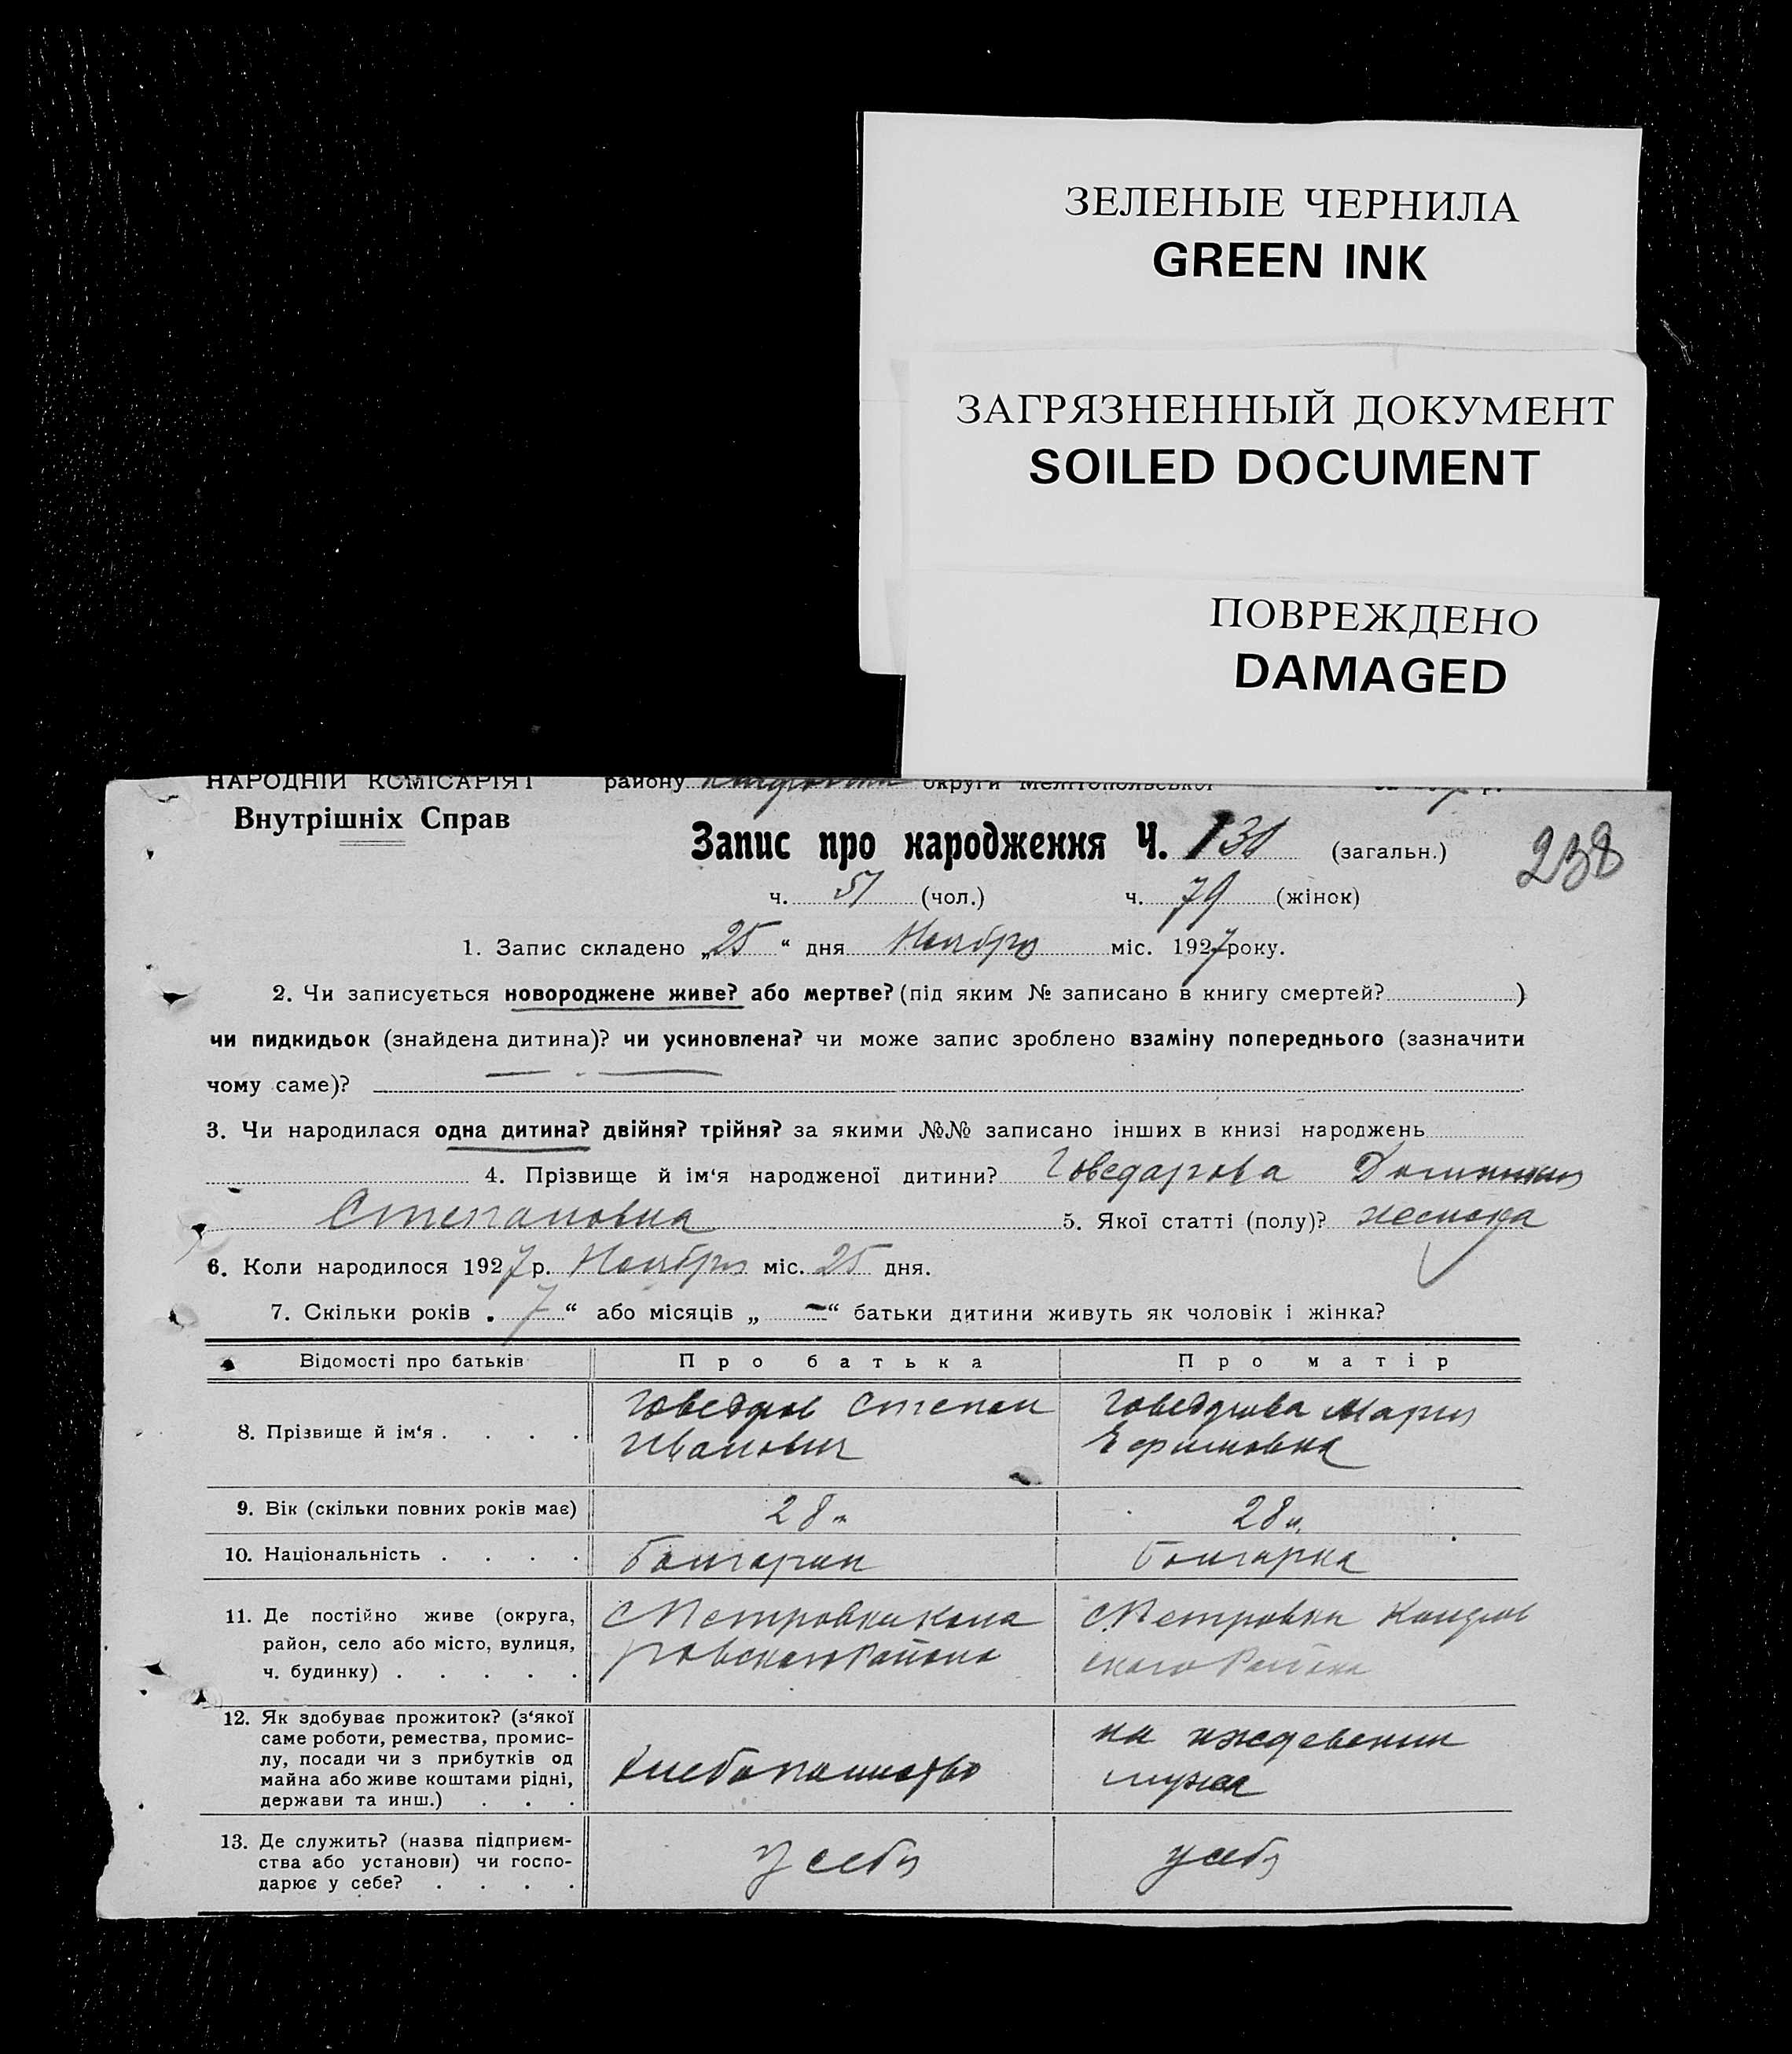 ЗЕЛЕНЫЕ ЧЕРНИЛА
GREEN INK
ЗАГРЯЗНЕННЫЙ ДОКУМЕНТ
SOILED DOCUMENT
ПОВРЕЖДЕНО
DAMAGED
НАРОДНІЙ КОМІСАРІЯТ району округи Мелітопольської
Внутрішніх Справ
Запис про народження Ч. 130 (загальн.) 238
ч. 51 (чол.) ч. 79 (жінок)
1. Запис складено „25“ дня Ноября міс. 1927 року.
2. Чи записується новороджене живе? або мертве? (під яким № записано в книгу смертей? )
чи пидкидьок (знайдена дитина)? чи усиновлена? чи може запис зроблено взаміну попереднього (зазначити
чому саме)?
3. Чи народилася одна дитина? двійня? трійня? за якими №№ записано інших в книзі народжень
4. Прізвище й ім‘я народженої дитини? Говедарова
Степановна 5. Якої статті (полу)? женска
6. Коли народилося 1927 р. Ноября міс. 25 дня.
7. Скільки років „7“ або місяців „—“ батьки дитини живуть як чоловік і жінка?
Відомості про батьків Про батька Про матір
8. Прізвище й ім‘я . . . . Говедаров Степан Иванович Говедарова Мария Ефимовна
9. Вік (скільки повних років має) 28 л 28 л.
10. Національність . . . . Болгарин Болгарка
11. Де постійно живе (округа,
район, село або місто, вулиця,
ч. будинку) . . . . . С Петровки района С. Петровки района
12. Як здобуває прожиток? (з‘якої
саме роботи, ремества, промис-
лу, посади чи з прибутків од
майна або живе коштами рідні,
держави та инш.) . . . Хлебопашество на иждевении мужа
13. Де служить? (назва підприєм-
ства або установи) чи госпо-
дарює у себе? . . . . у себя у себя